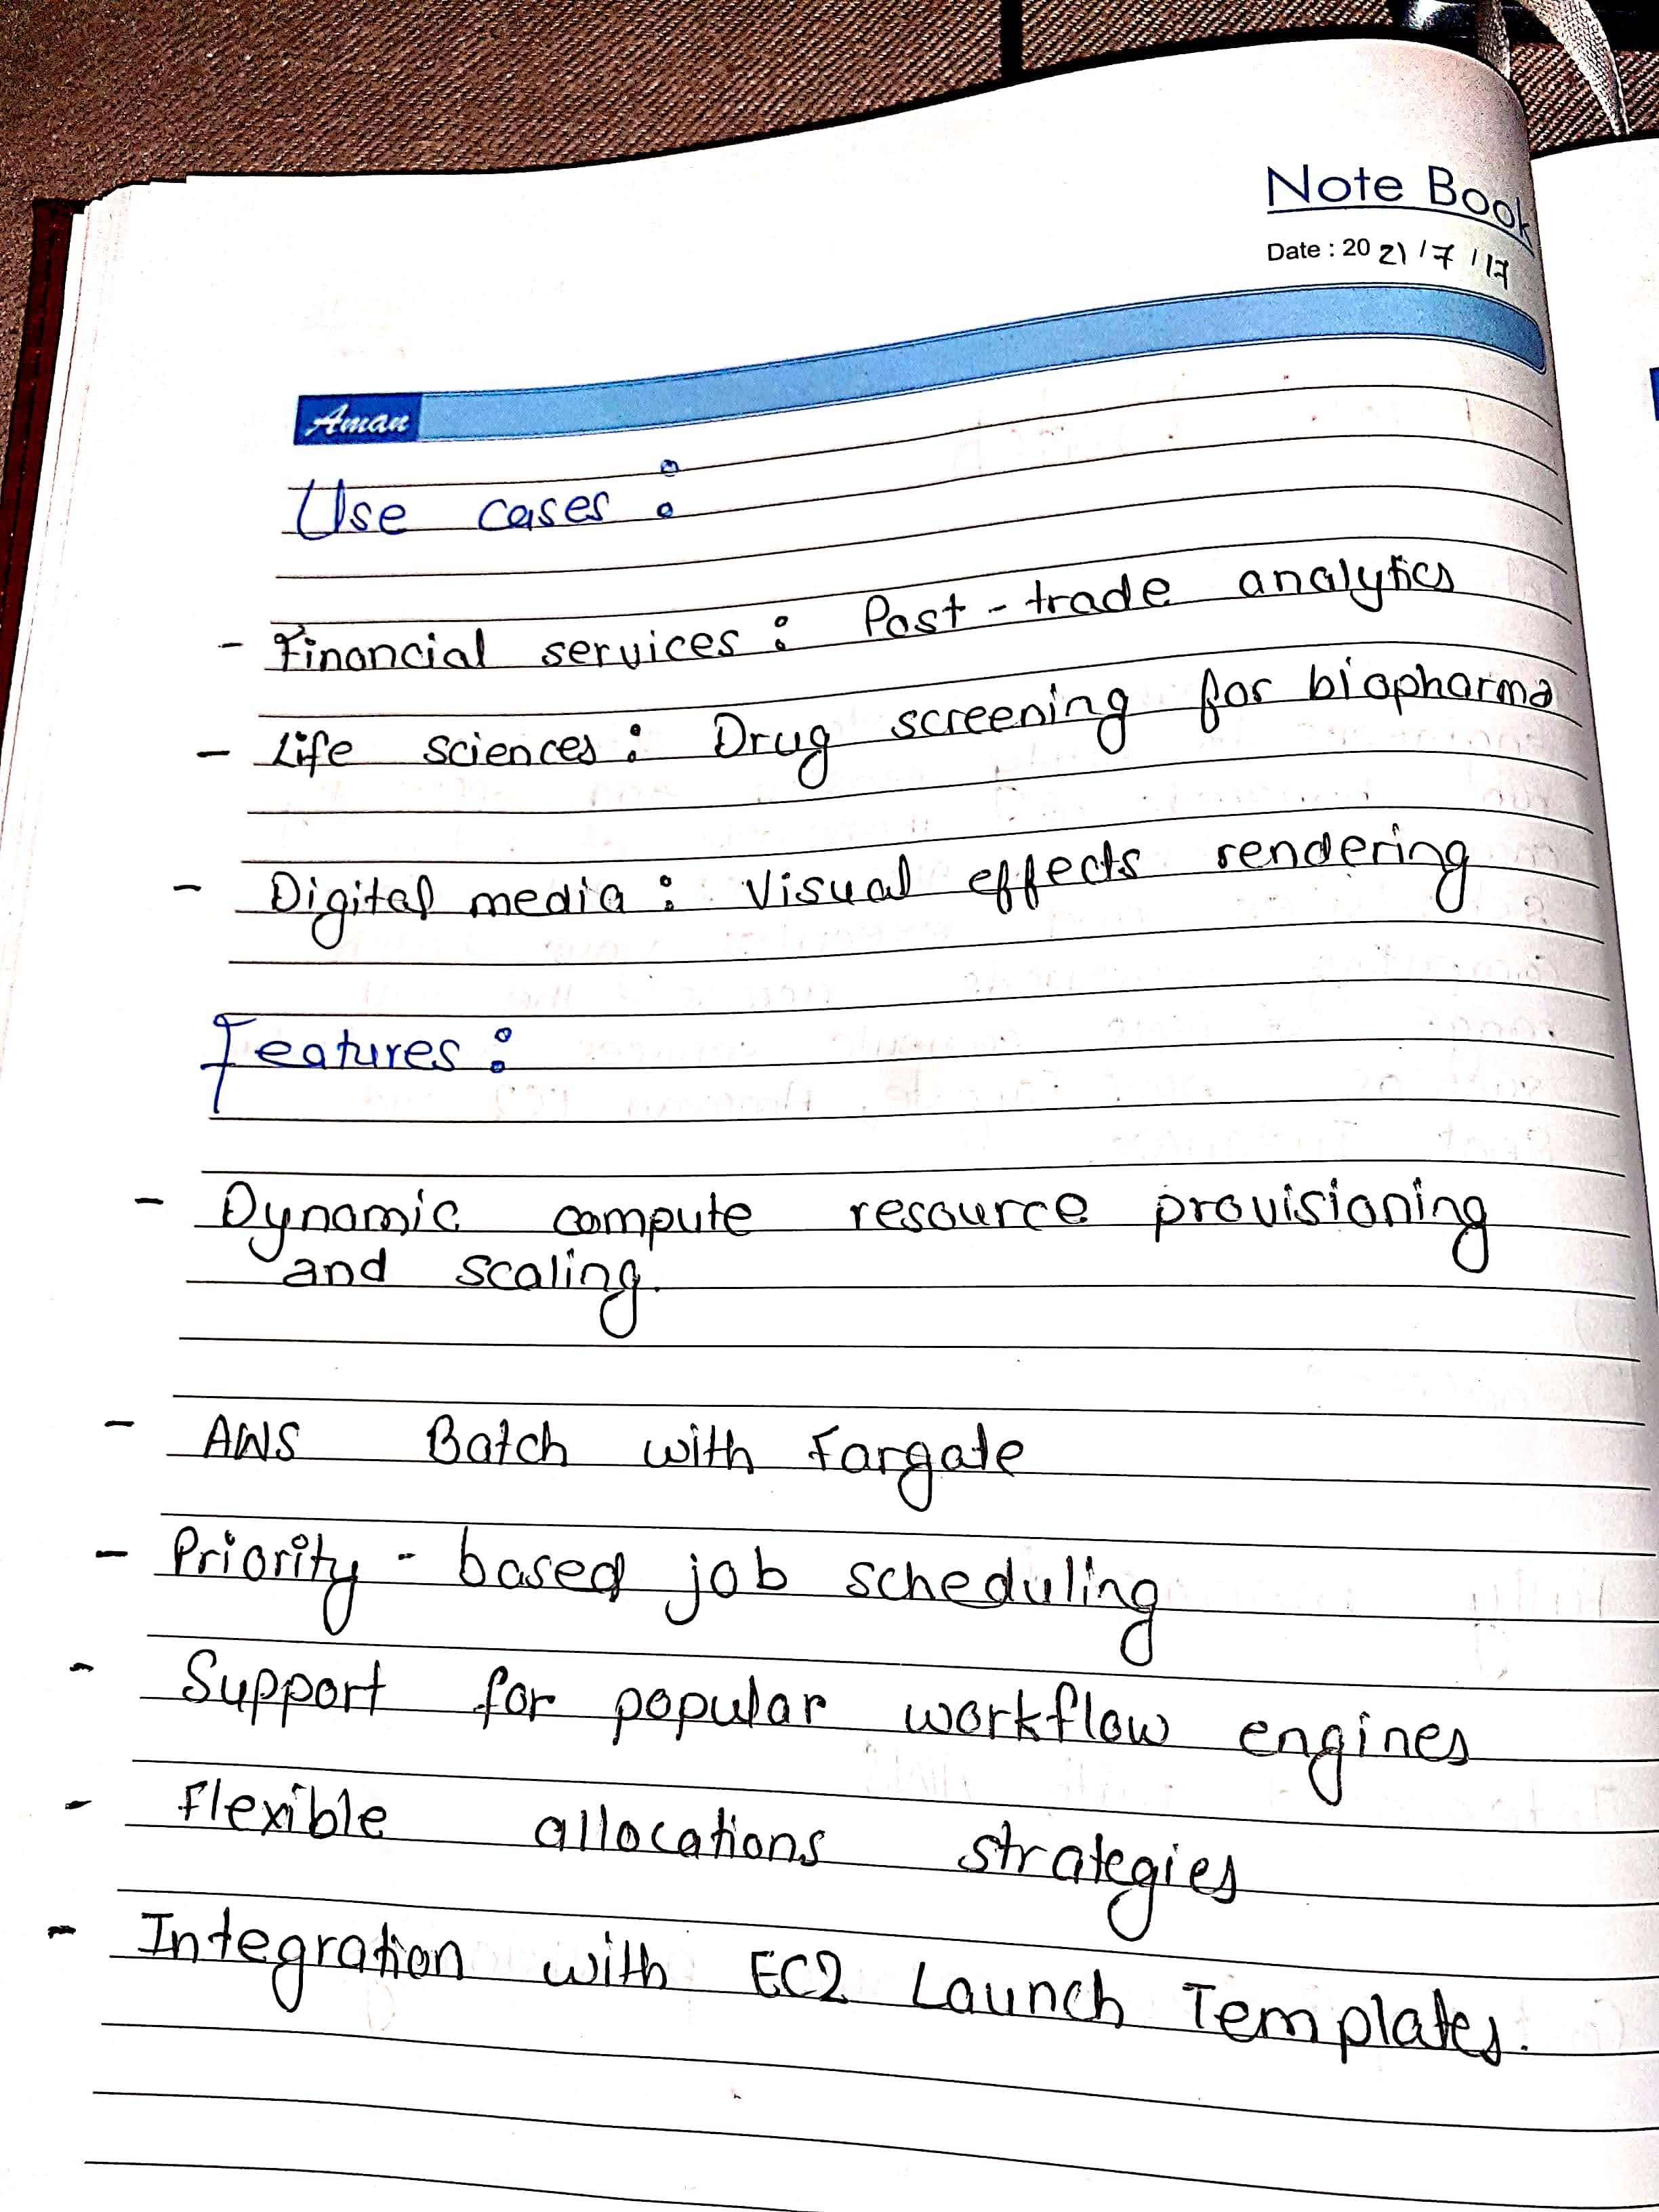 Note Book
Date : 2021/7/17
Aman
Use cases :
- Financial services : Post-trade analytics
- Life sciences : Drug screening for biopharma
- Digital media : Visual effects rendering
Features :
- Dynamic compute resource provisioning
and scaling.
- AWS Batch with Fargate
- Priority-based job scheduling
- Support for popular workflow engines
- Flexible allocations strategies
- Integration with EC2 Launch Templates.